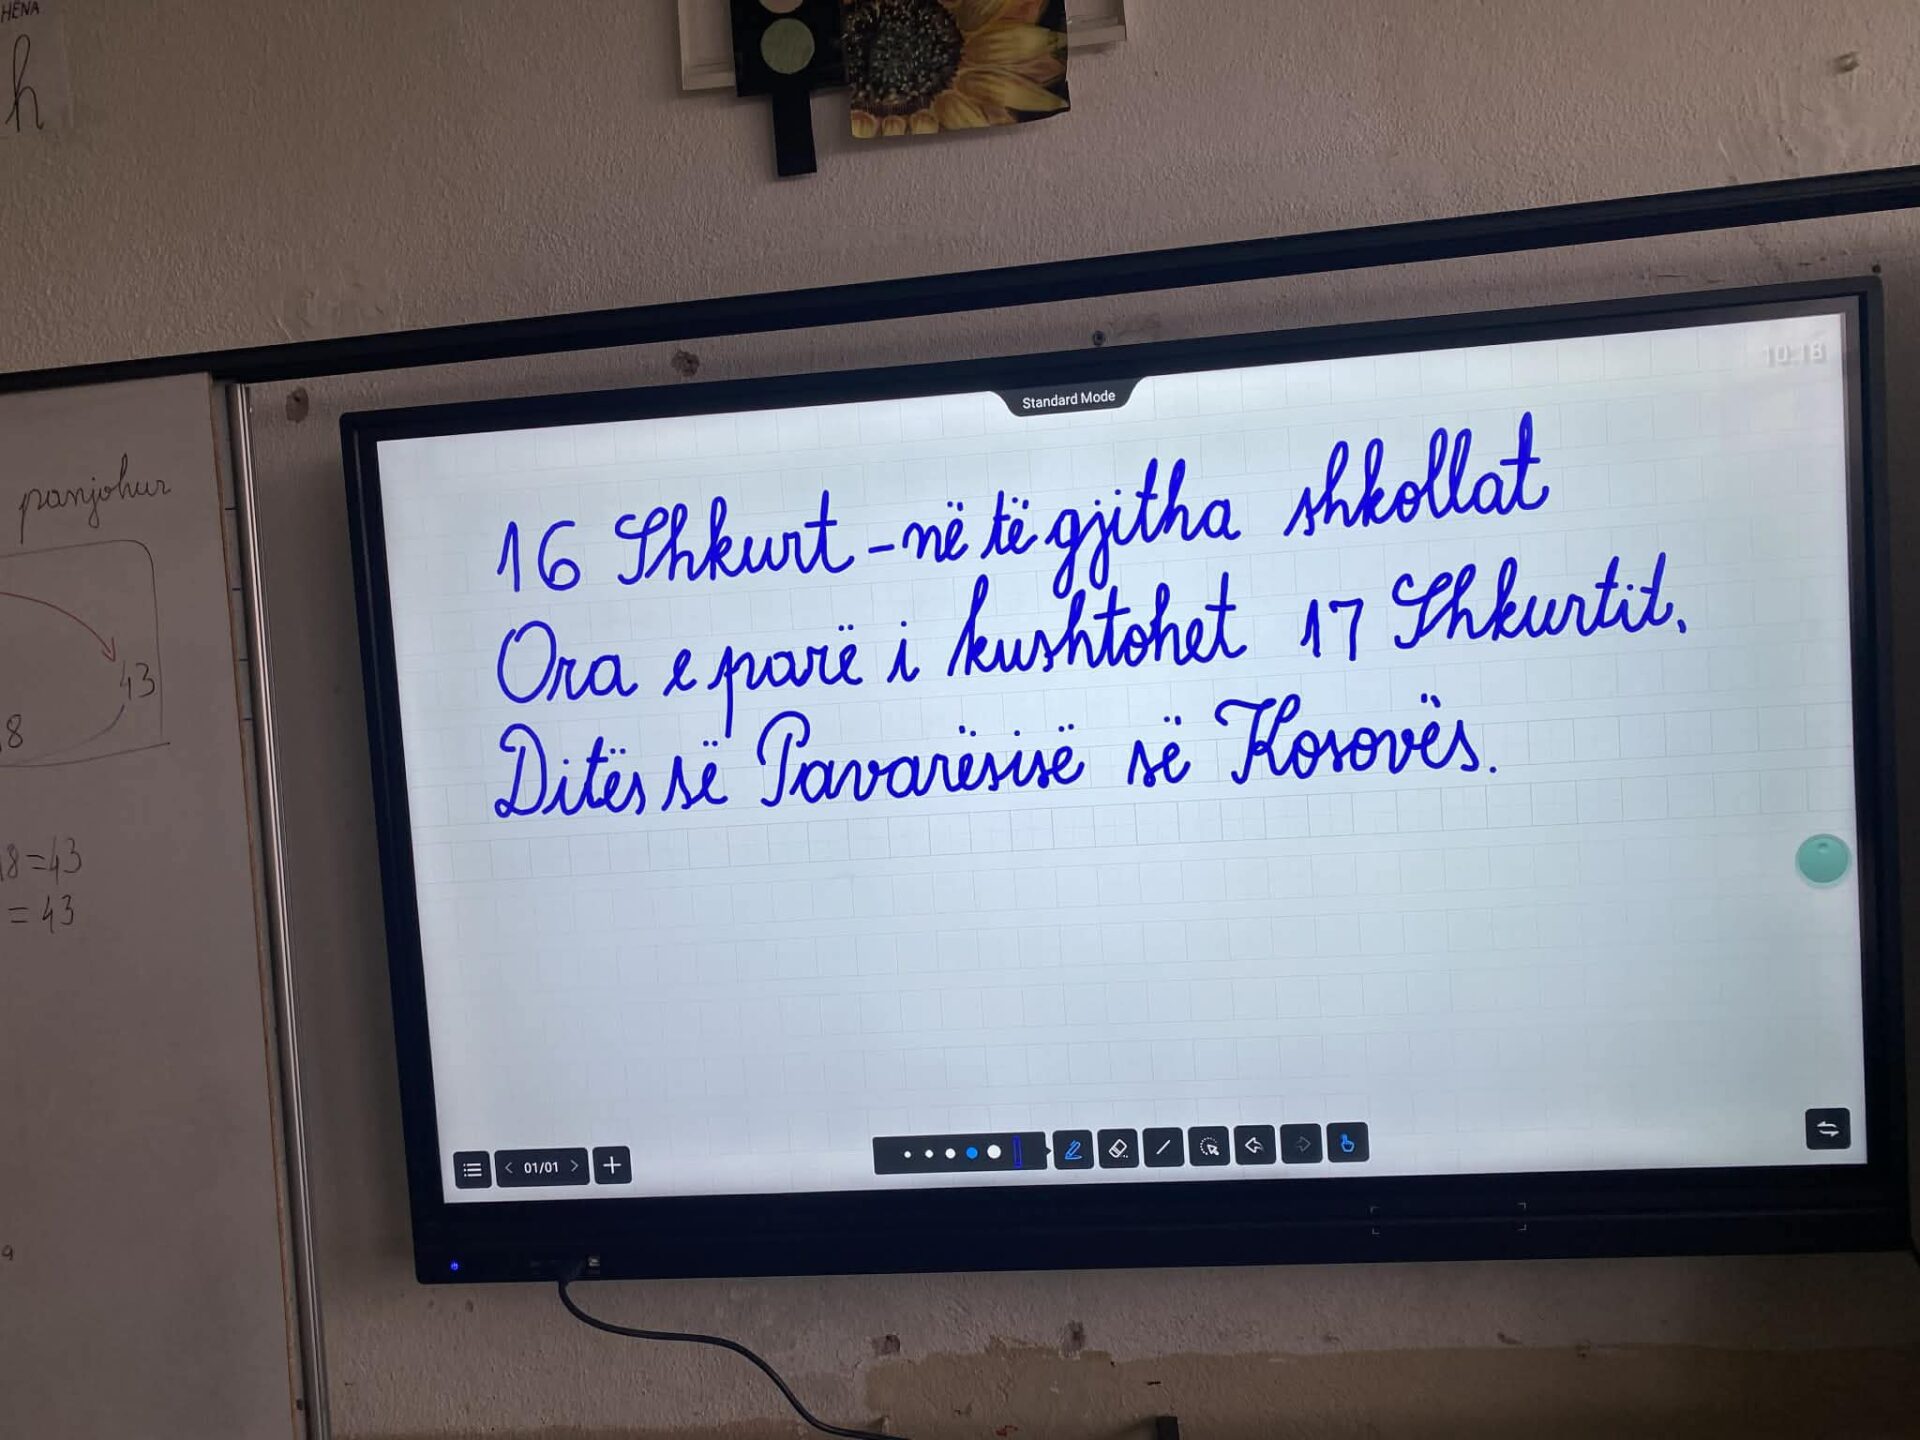 HËNA
h
Standard Mode
10:18
panjohur
16 Shkurt - në të gjitha shkollat
Ora e parë i kushtohet 17 Shkurtit,
Ditës së Pavarësisë së Kosovës.
43
8
8=43
= 43
01/01